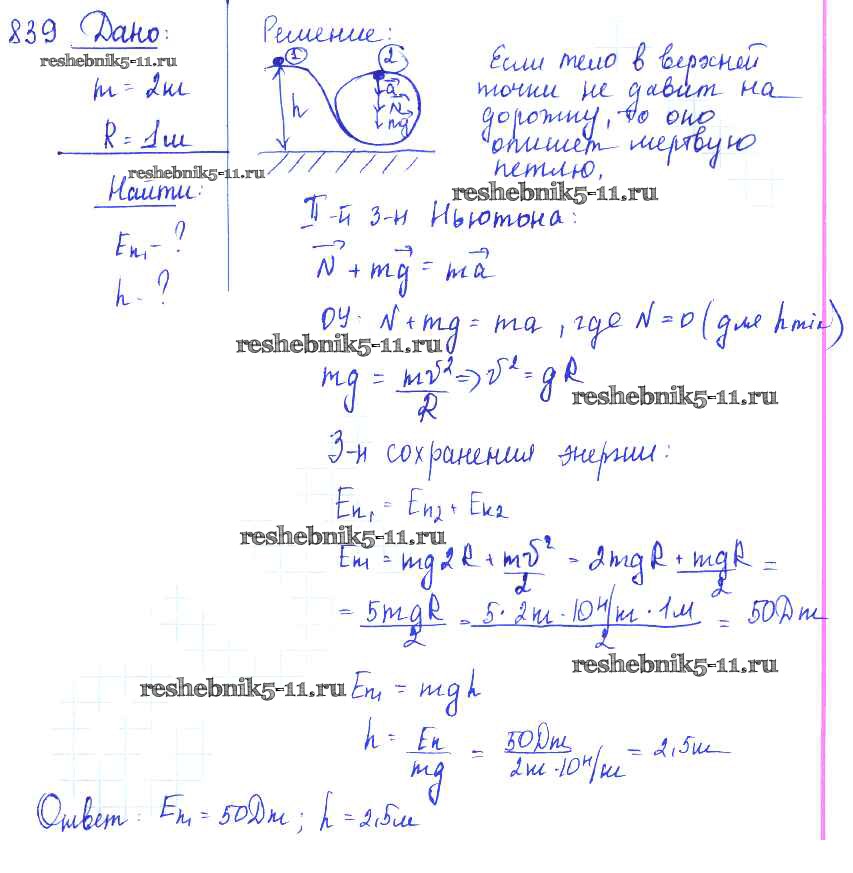 839 Дано:
reshebnik5-11.ru
m = 2кг
R = 1м
reshebnik5-11.ru
Найти:
Eп₁ - ?
h - ?
Решение:
1
2
h
a
N
mg
Если тело в верхней
точки не давит на
дорожку, то оно
опишет мертвую
петлю.
reshebnik5-11.ru
II-й з-н Ньютона:
N + mg = ma
OY: N + mg = ma, где N = 0 (для h min)
reshebnik5-11.ru
mg = mv²/R => v² = gR
reshebnik5-11.ru
З-н сохранения энергии:
Eп₁ = Eп₂ + Eк₂
reshebnik5-11.ru
Eп₁ = mg2R + mv²/2 = 2mgR + mgR/2 =
= 5mgR/2 = 5·2кг·10Н/кг·1м/2 = 50Дж
reshebnik5-11.ru
reshebnik5-11.ru
Eп₁ = mgh
h = Eп/mg = 50Дж/2кг·10Н/кг = 2,5м
Ответ: Eп₁ = 50Дж; h = 2,5м